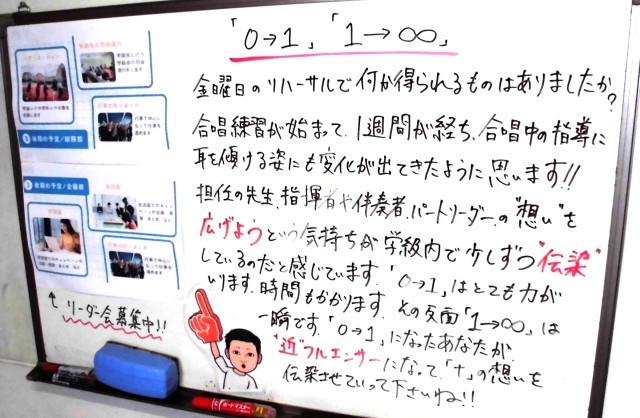 「0→1」「1→∞」
金曜日のリハーサルで何か得られるものはありましたか?
合唱練習が始まって、1週間が経ち、合唱中の指導に
耳を傾ける姿にも変化が出てきたように思います!!
担任の先生、指揮者や伴奏者、パートリーダー、の"想い"を
広げようという気持ちが学級内で少しずつ"伝染"
しているのだと感じています。「0→1」はとても力が
いります。時間もかかります。その反面「1→∞」は
一瞬です。「0→1」になったあなたが、
"近"フルエンサーになって、「+」の想いを
伝染させていって下さいね!!
↑リーダー会募集中!!